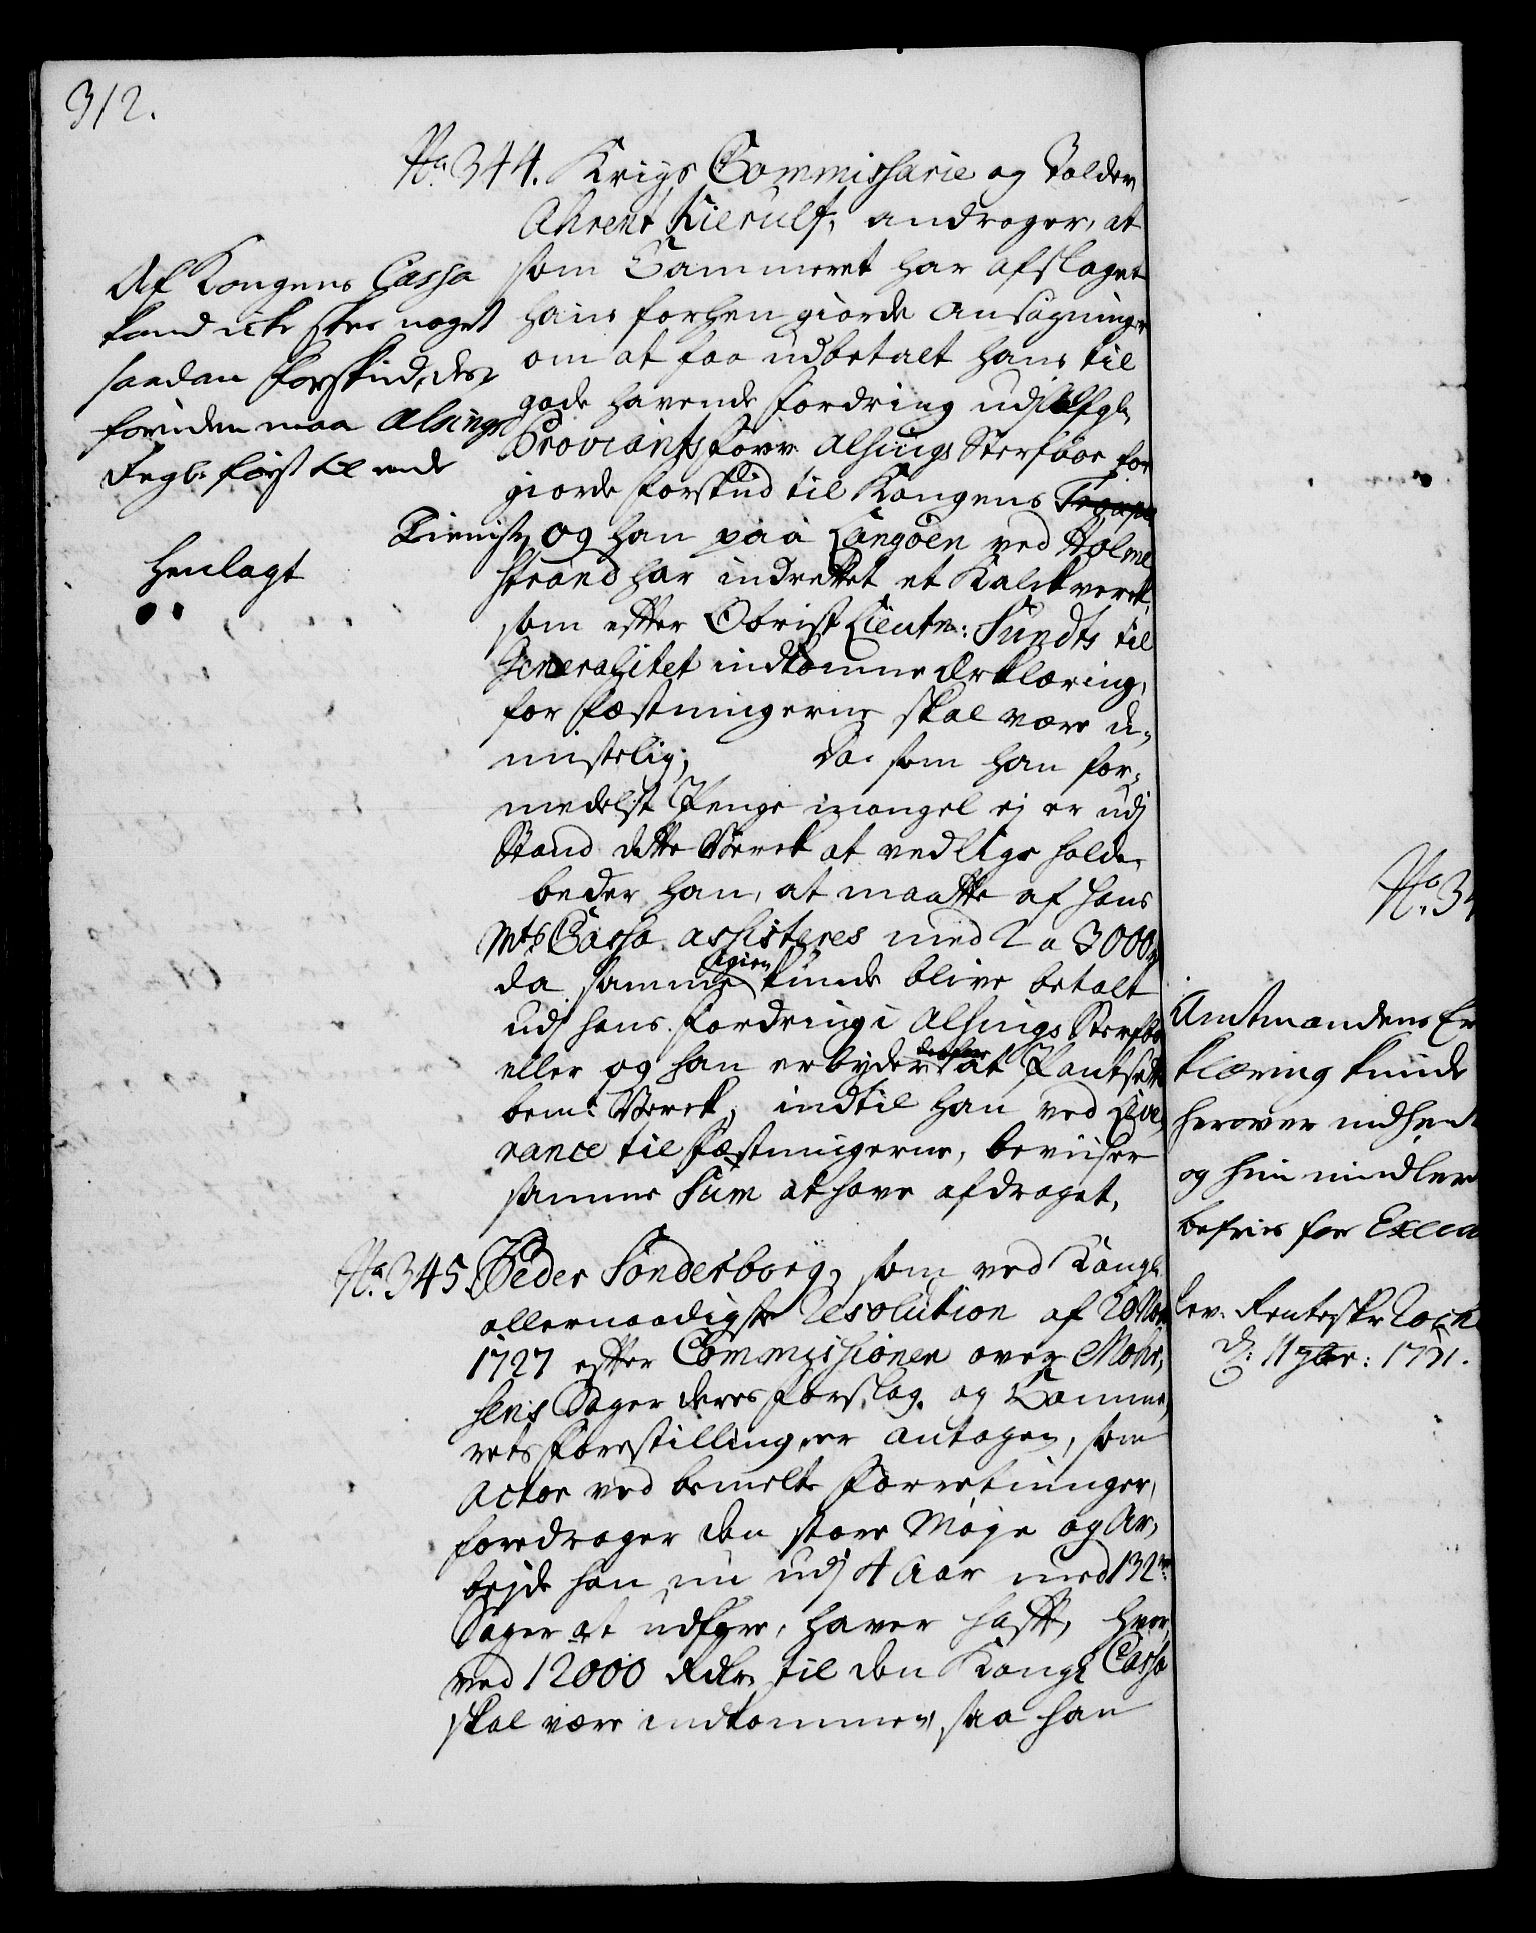 312.
No. 344. Krigs Commissarie og Tolder
Ahrent Kierulf, andrager, at
som Cammeret har afslaget
hans forhen giorde Ansøgninger
om at faa udbetalt hans til
gode havende fordring udj Afgl.
Proviantsforv: Alsings Sterfboe for
giorde forskud til Kongens
Tieniste, og han paa Langöen ved Holme
strand har indrettet et Kalckverck,
som effter Obrist Lieutn: Sundts til
Generalitet indkomne Erklæring,
for Fæstningerne skal være u-
mistelig; Da som han for-
medelst Penge mangel ej er udj
Stand dette Verck at vedlige holde,
beder han, at maatte af Hans
Mts Cassa assisteres med 2 a 3000
da samme igien kunde blive betalt
udj hans fordring i Alsings Sterfboe
eller og han erbyder at Pantsætte
bemte Verck, indtil han ved Leve-
rance til Fæstningerne, beviiser
samme Sum at have afdraget.
Af Kongens Cassa
kand icke skee noget
saadan forskud, des-
foruden maa Alsings
Regb: først til ende
Henlagt
No. 345. Peder Sønderborg, som ved Kongl.
allernaadigste Resolution af 20 Nov
1727 effter Commissionen over Mohr-
sens Sager deres forslag, og Camme-
rets forestilling, er antagen, som
Actor ved bemelte forretninger,
foredrager den store Møje og Ar-
bejde han nu udj 4 Aar med 132
Sager at udføre, haver hafft, hvor-
ved 12000 Rdlr til den Kongl Cassa
skal være indkommen, saa han
No. 34
Amtmandens Er
klæring kunde
herover indhent
og hun midler
befries for Execu
lev. Renteskr
d: 11 7br: 1731.